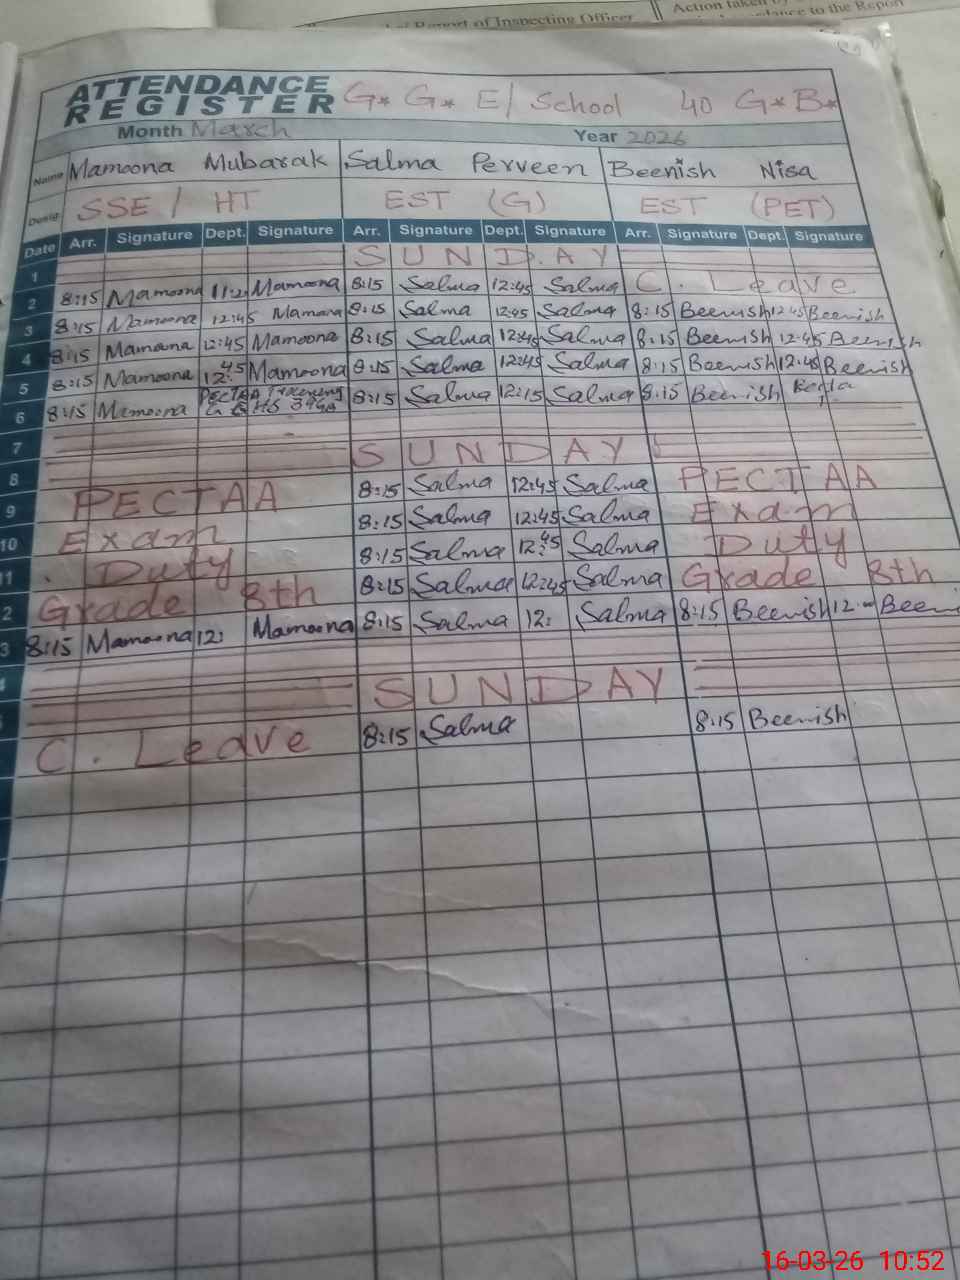 Report of Inspecting Officer
Action taken
to the Report
ATTENDANCE
REGISTER
G* G* E/ School 40 G*B*
Month March Year 2026
Name Mamoona Mubarak Salma Perveen Beenish Nisa
Desig. SSE / HT EST (G) EST (PET)
Date Arr. Signature Dept. Signature Arr. Signature Dept. Signature Arr. Signature Dept. Signature
1 SUNDAY
2 8:15 Mamoona Mamoona 8:15 Salma 12:45 Salma C. Leave
3 8:15 Mamoona 12:45 Mamoona 8:15 Salma 12:45 Salma 8:15 Beenish 12:45 Beenish
4 8:15 Mamoona 12:45 Mamoona 8:15 Salma 12:45 Salma 8:15 Beenish 12:45 Beenish
5 8:15 Mamoona 12:45 Mamoona 8:15 Salma 12:45 Salma 8:15 Beenish 12:45 Beenish
6 8:15 Mamoona 8:15 Salma 12:15 Salma 8:15 Beenish
7
8 SUNDAY
9 PECTAA 8:15 Salma 12:45 Salma PECTAA
10 Exam 8:15 Salma 12:45 Salma Exam
11 Duty 8:15 Salma 12:45 Salma Duty
2 Grade 8th 8:15 Salma 12:45 Salma Grade 8th
3 8:15 Mamoona 12: Mamoona 8:15 Salma 12: Salma 8:15 Beenish 12
4
SUNDAY
C. Leave 8:15 Salma 8:15 Beenish
16-03-26 10:52